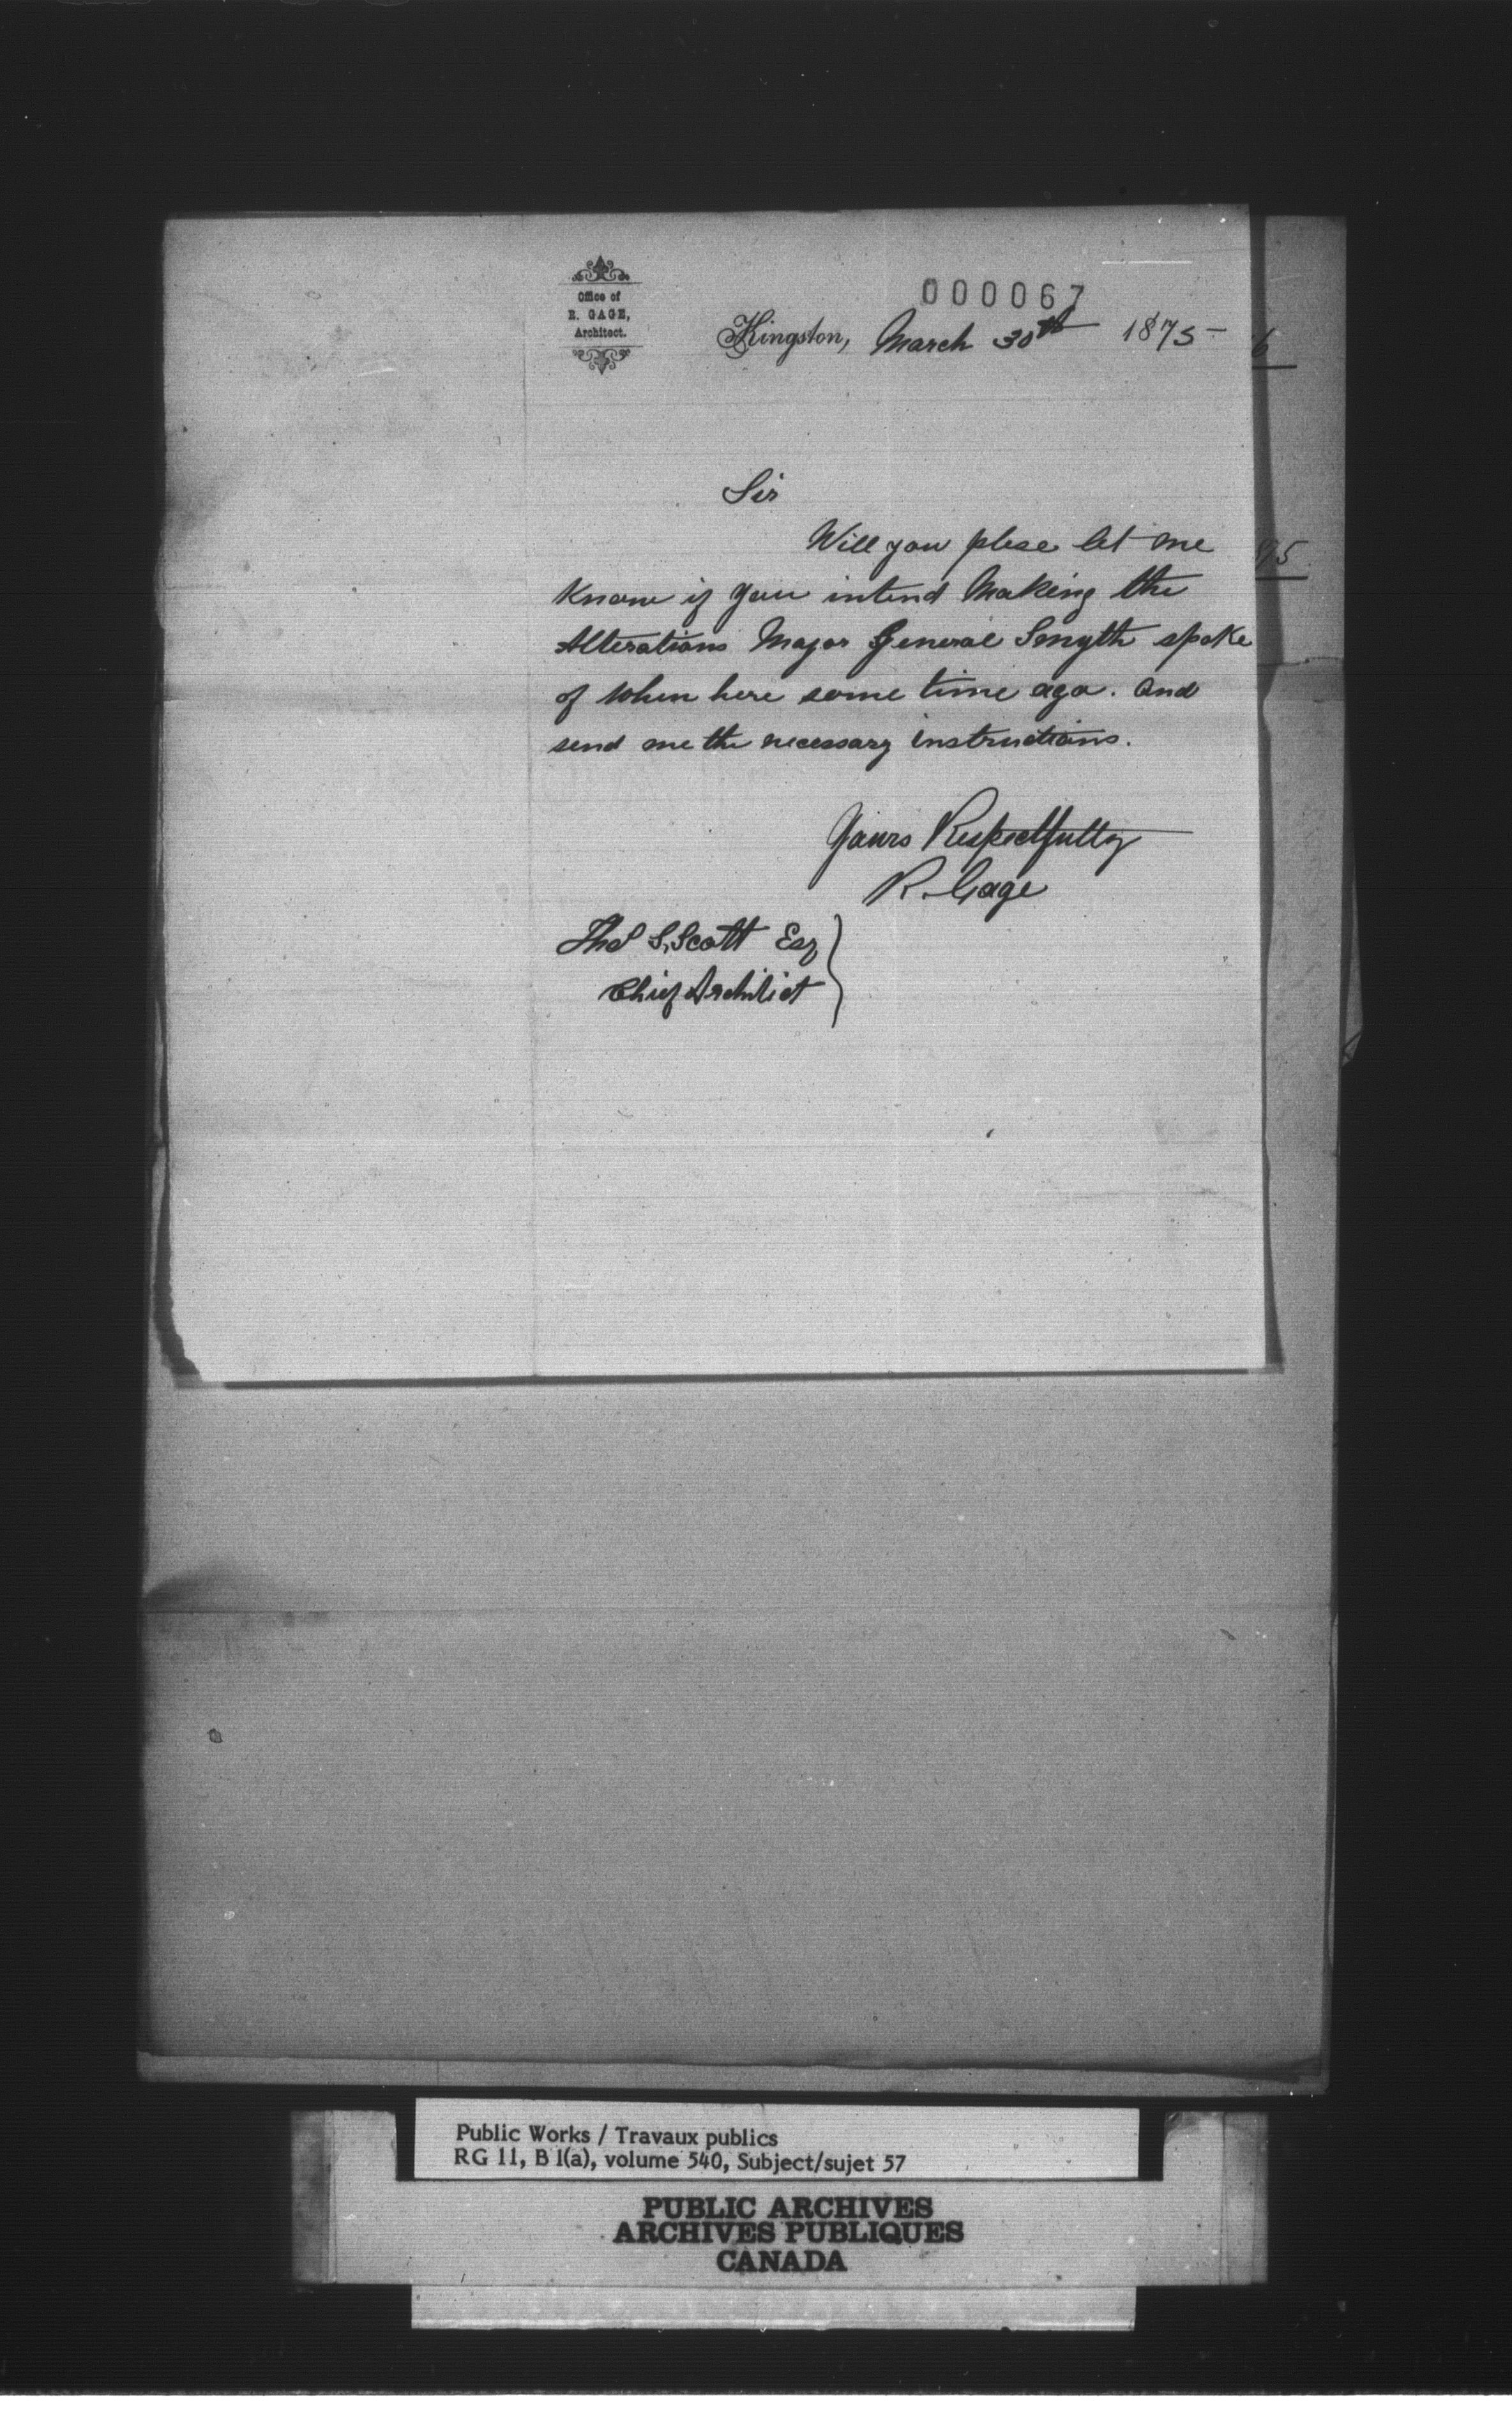 000067
Office of
R. GAGE,
Architect.
Kingston, March 30th 1875
6
Sir
Will you plese let me
75
Know if you intend Making the
Alterations Major General Smyth spoke
of When here some time ago. And
send me the necessary instructions.
Yours Respectfully
R. Gage
Thos S. Scott Esq
Chief Architect
Public Works / Travaux publics
RG 11, B 1(a), volume 540, Subject/sujet 57
PUBLIC ARCHIVES
ARCHIVES PUBLIQUES
CANADA